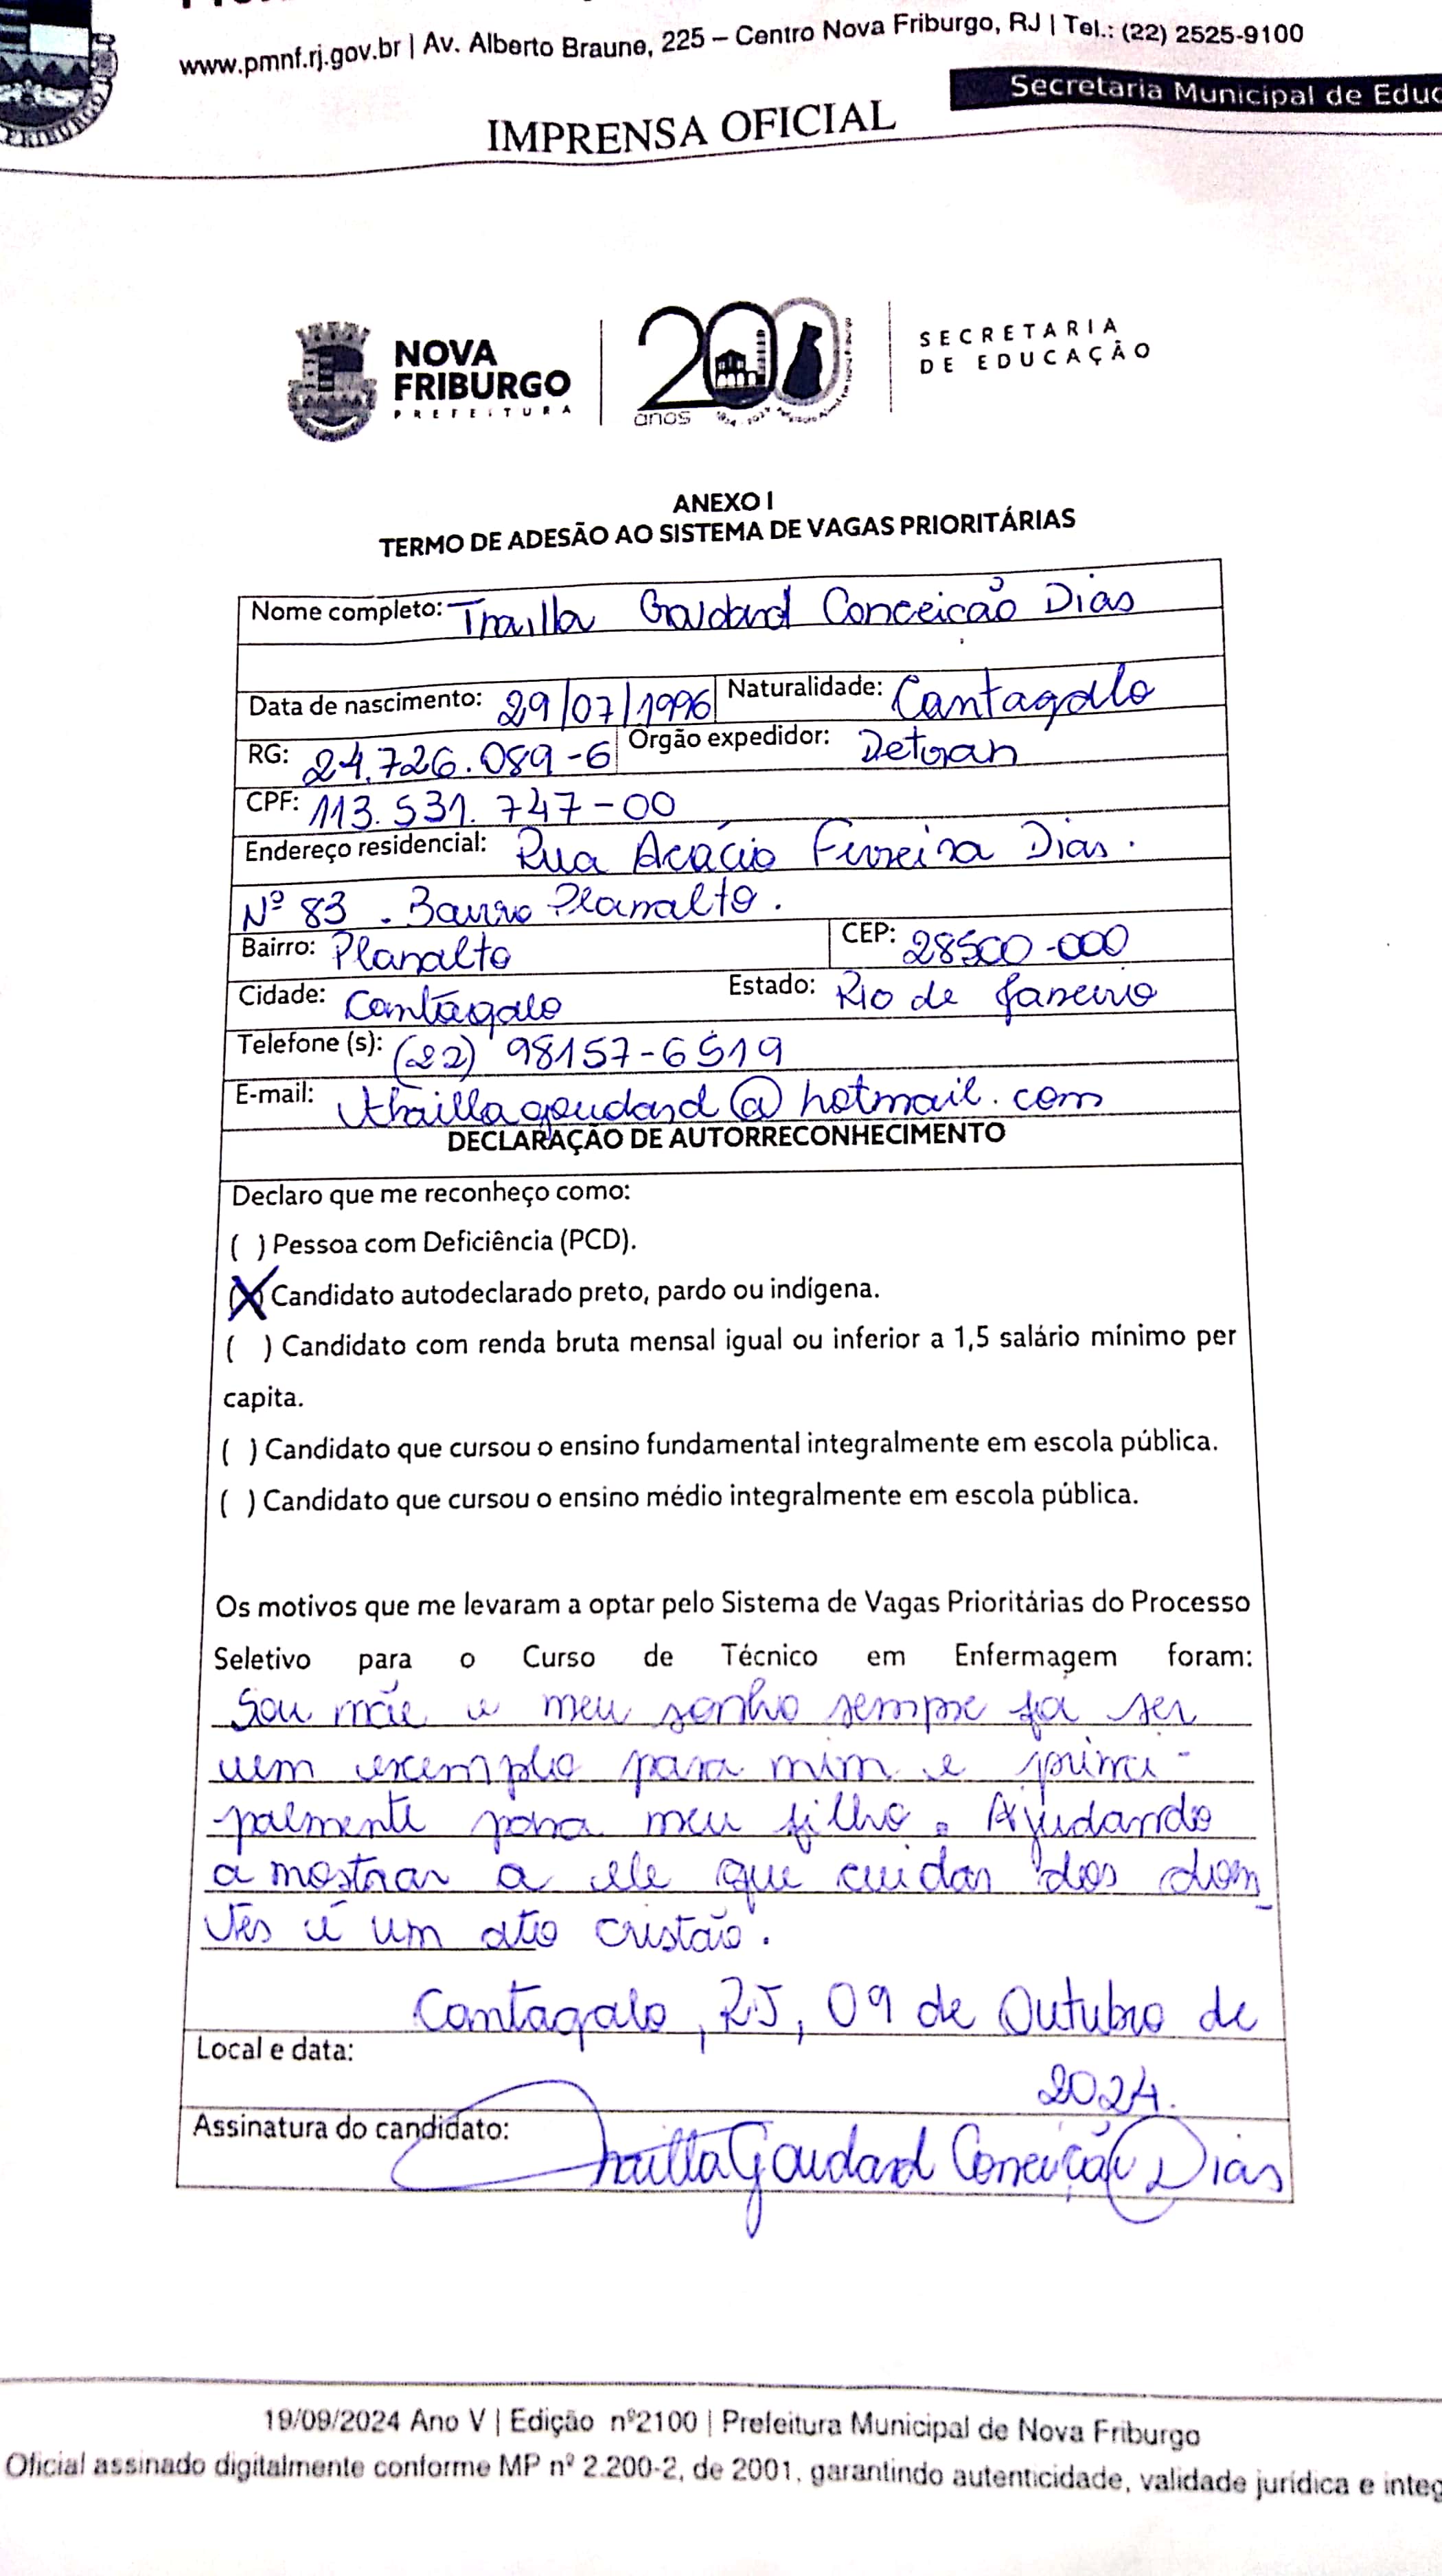 www.pmnf.rj.gov.br | Av. Alberto Braune, 225 – Centro Nova Friburgo, RJ | Tel.: (22) 2525-9100
Secretaria Municipal de Educ
IMPRENSA OFICIAL
FRIBURGO
NOVA
FRIBURGO
PREFEITURA
200
anos
SECRETARIA
DE EDUCAÇÃO
ANEXO I
TERMO DE ADESÃO AO SISTEMA DE VAGAS PRIORITÁRIAS
Nome completo: Thailla Goudard Conceição Dias
Data de nascimento: 29/07/1996 Naturalidade: Cantagalo
RG: 24.726.089-6 Orgão expedidor: Detran
CPF: 113.531.747-00
Endereço residencial: Rua Acácio Ferreira Dias.
Nº 83 . Bairro Planalto.
Bairro: Planalto CEP: 28500-000
Cidade: Cantagalo Estado: Rio de Janeiro
Telefone (s): (22) 98157-6519
E-mail: thaillagoudard@hotmail.com
DECLARAÇÃO DE AUTORRECONHECIMENTO
Declaro que me reconheço como:
( ) Pessoa com Deficiência (PCD).
(X) Candidato autodeclarado preto, pardo ou indígena.
( ) Candidato com renda bruta mensal igual ou inferior a 1,5 salário mínimo per
capita.
( ) Candidato que cursou o ensino fundamental integralmente em escola pública.
( ) Candidato que cursou o ensino médio integralmente em escola pública.
Os motivos que me levaram a optar pelo Sistema de Vagas Prioritárias do Processo
Seletivo para o Curso de Técnico em Enfermagem foram:
Sou mãe e meu sonho sempre foi ser
um exemplo para mim e princi-
palmente para meu filho. Ajudando
a mostrar a ele que cuidar dos doen-
tes é um ato cristão.
Cantagalo, RJ, 09 de Outubro de
Local e data:
2024.
Assinatura do candidato: Thailla Goudard Conceição Dias
19/09/2024 Ano V | Edição nº2100 | Prefeitura Municipal de Nova Friburgo
Oficial assinado digitalmente conforme MP nº 2.200-2, de 2001, garantindo autenticidade, validade jurídica e integ